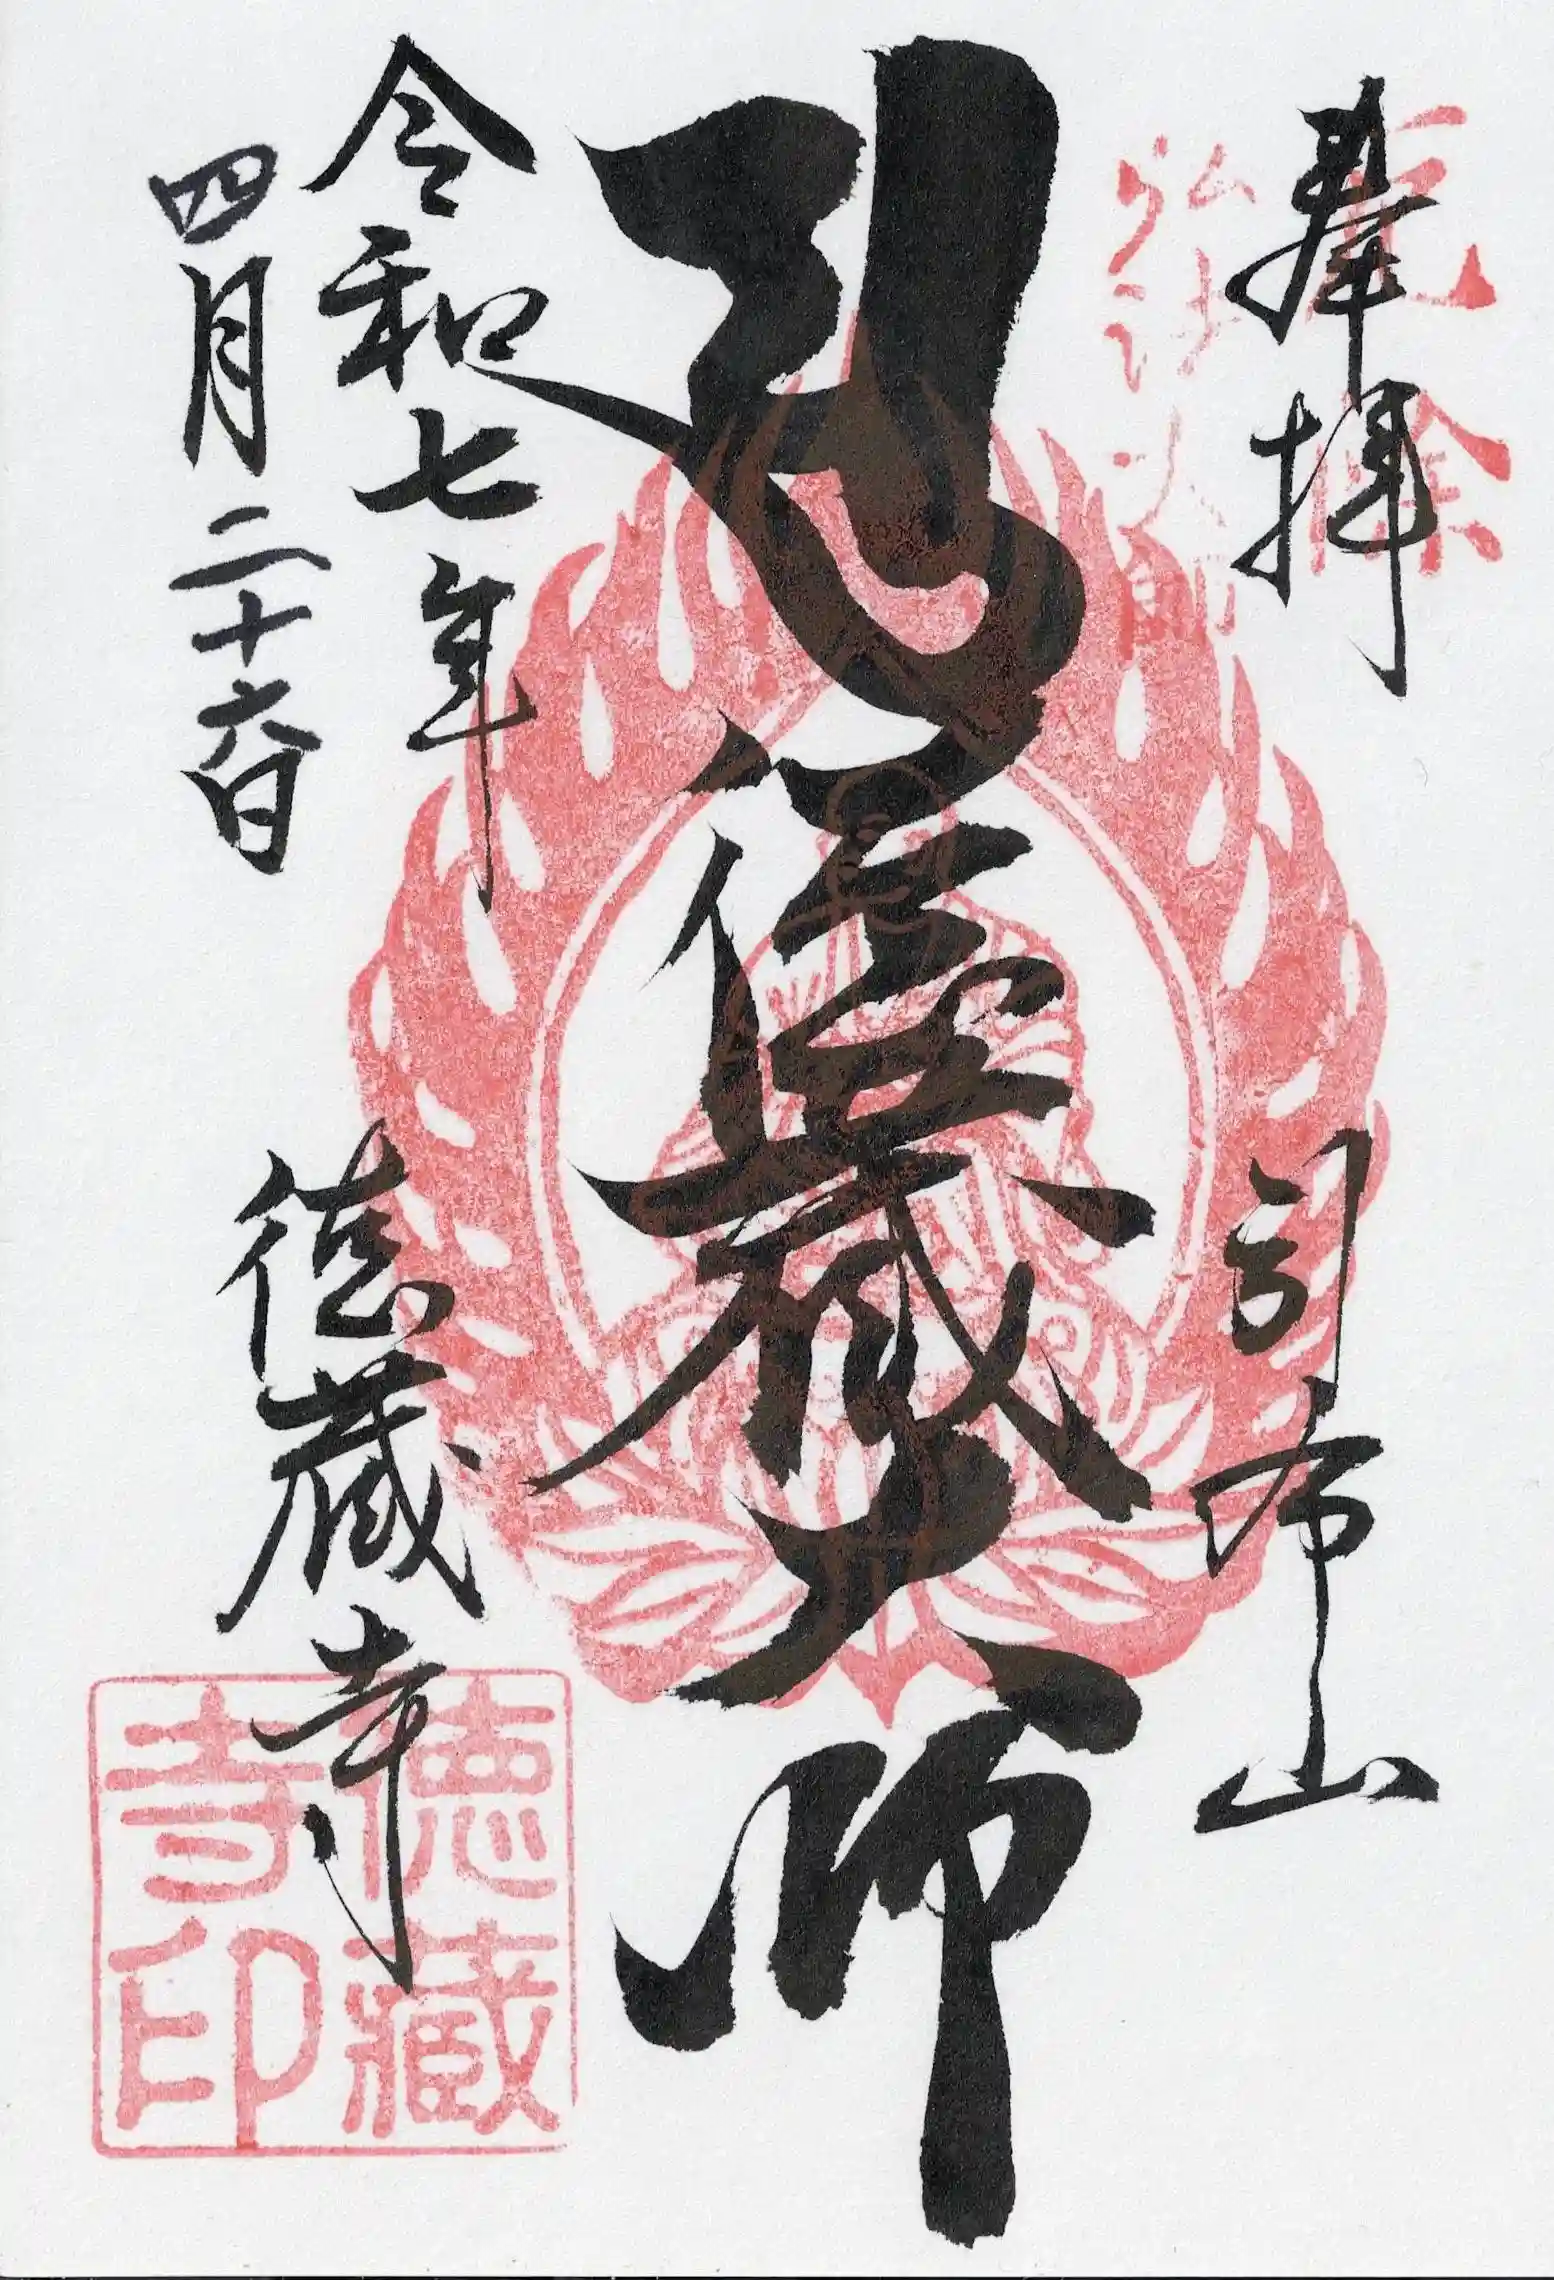 奉拝
厄除
引布山
弘法大師
蔵大師
令和七年
四月二十六日
徳蔵寺
徳藏
寺印